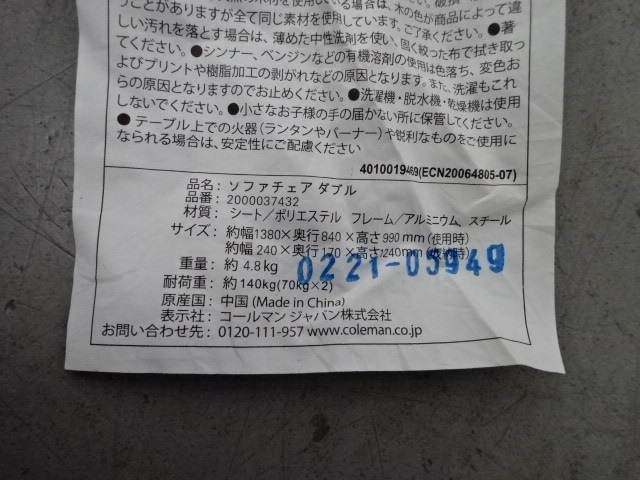 うことがありますが全て同じ素材を使用しています。ご了承ください。●著
しい汚れを落とす場合は、薄めた中性洗剤を使い、固く絞った布で拭き取っ
てください。●シンナー、ベンジンなどの有機溶剤の使用は色落ち、変色お
よびプリントや樹脂加工の剥がれなどの原因となります。また、洗濯もこれ
らの原因となりますのでお止めください。●洗濯機・脱水機・乾燥機は使用
しないでください。●小さなお子様の手の届かない所に保管してください。
●テーブル上での火器(ランタンやバーナー)や鋭利なものをご使用に
なられる場合は、安定性にご配慮ください
4010019469(ECN20064805-07)
品名: ソファチェア ダブル
品番: 2000037432
材質: シート/ポリエステル フレーム/アルミニウム、スチール
サイズ: 約幅1380×奥行840×高さ990mm(使用時)
約幅240×奥行170×高さ1240mm(収納時)
重量: 約4.8kg
0221-03949
耐荷重: 約140kg(70kg×2)
原産国: 中国(Made in China)
表示社: コールマン ジャパン株式会社
お問い合わせ先: 0120-111-957 www.coleman.co.jp